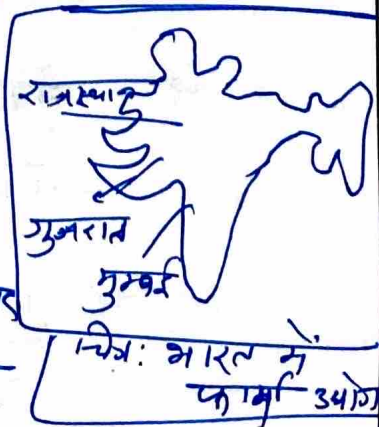 राजस्थान
गुजरात
मुम्बई
चित्र: भारत में
फार्मा उद्योग